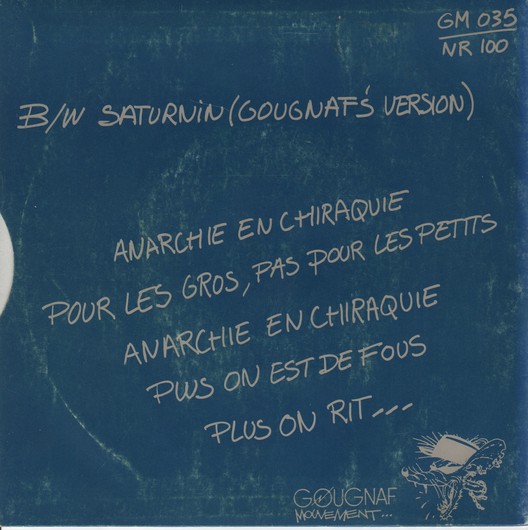 GM 035
NR 100
B/W SATURNIN (GOUGNAF'S VERSION)
ANARCHIE EN CHIRAQUIE
POUR LES GROS, PAS POUR LES PETITS
ANARCHIE EN CHIRAQUIE
PLUS ON EST DE FOUS
PLUS ON RIT...
GOUGNAF
MOUVEMENT...